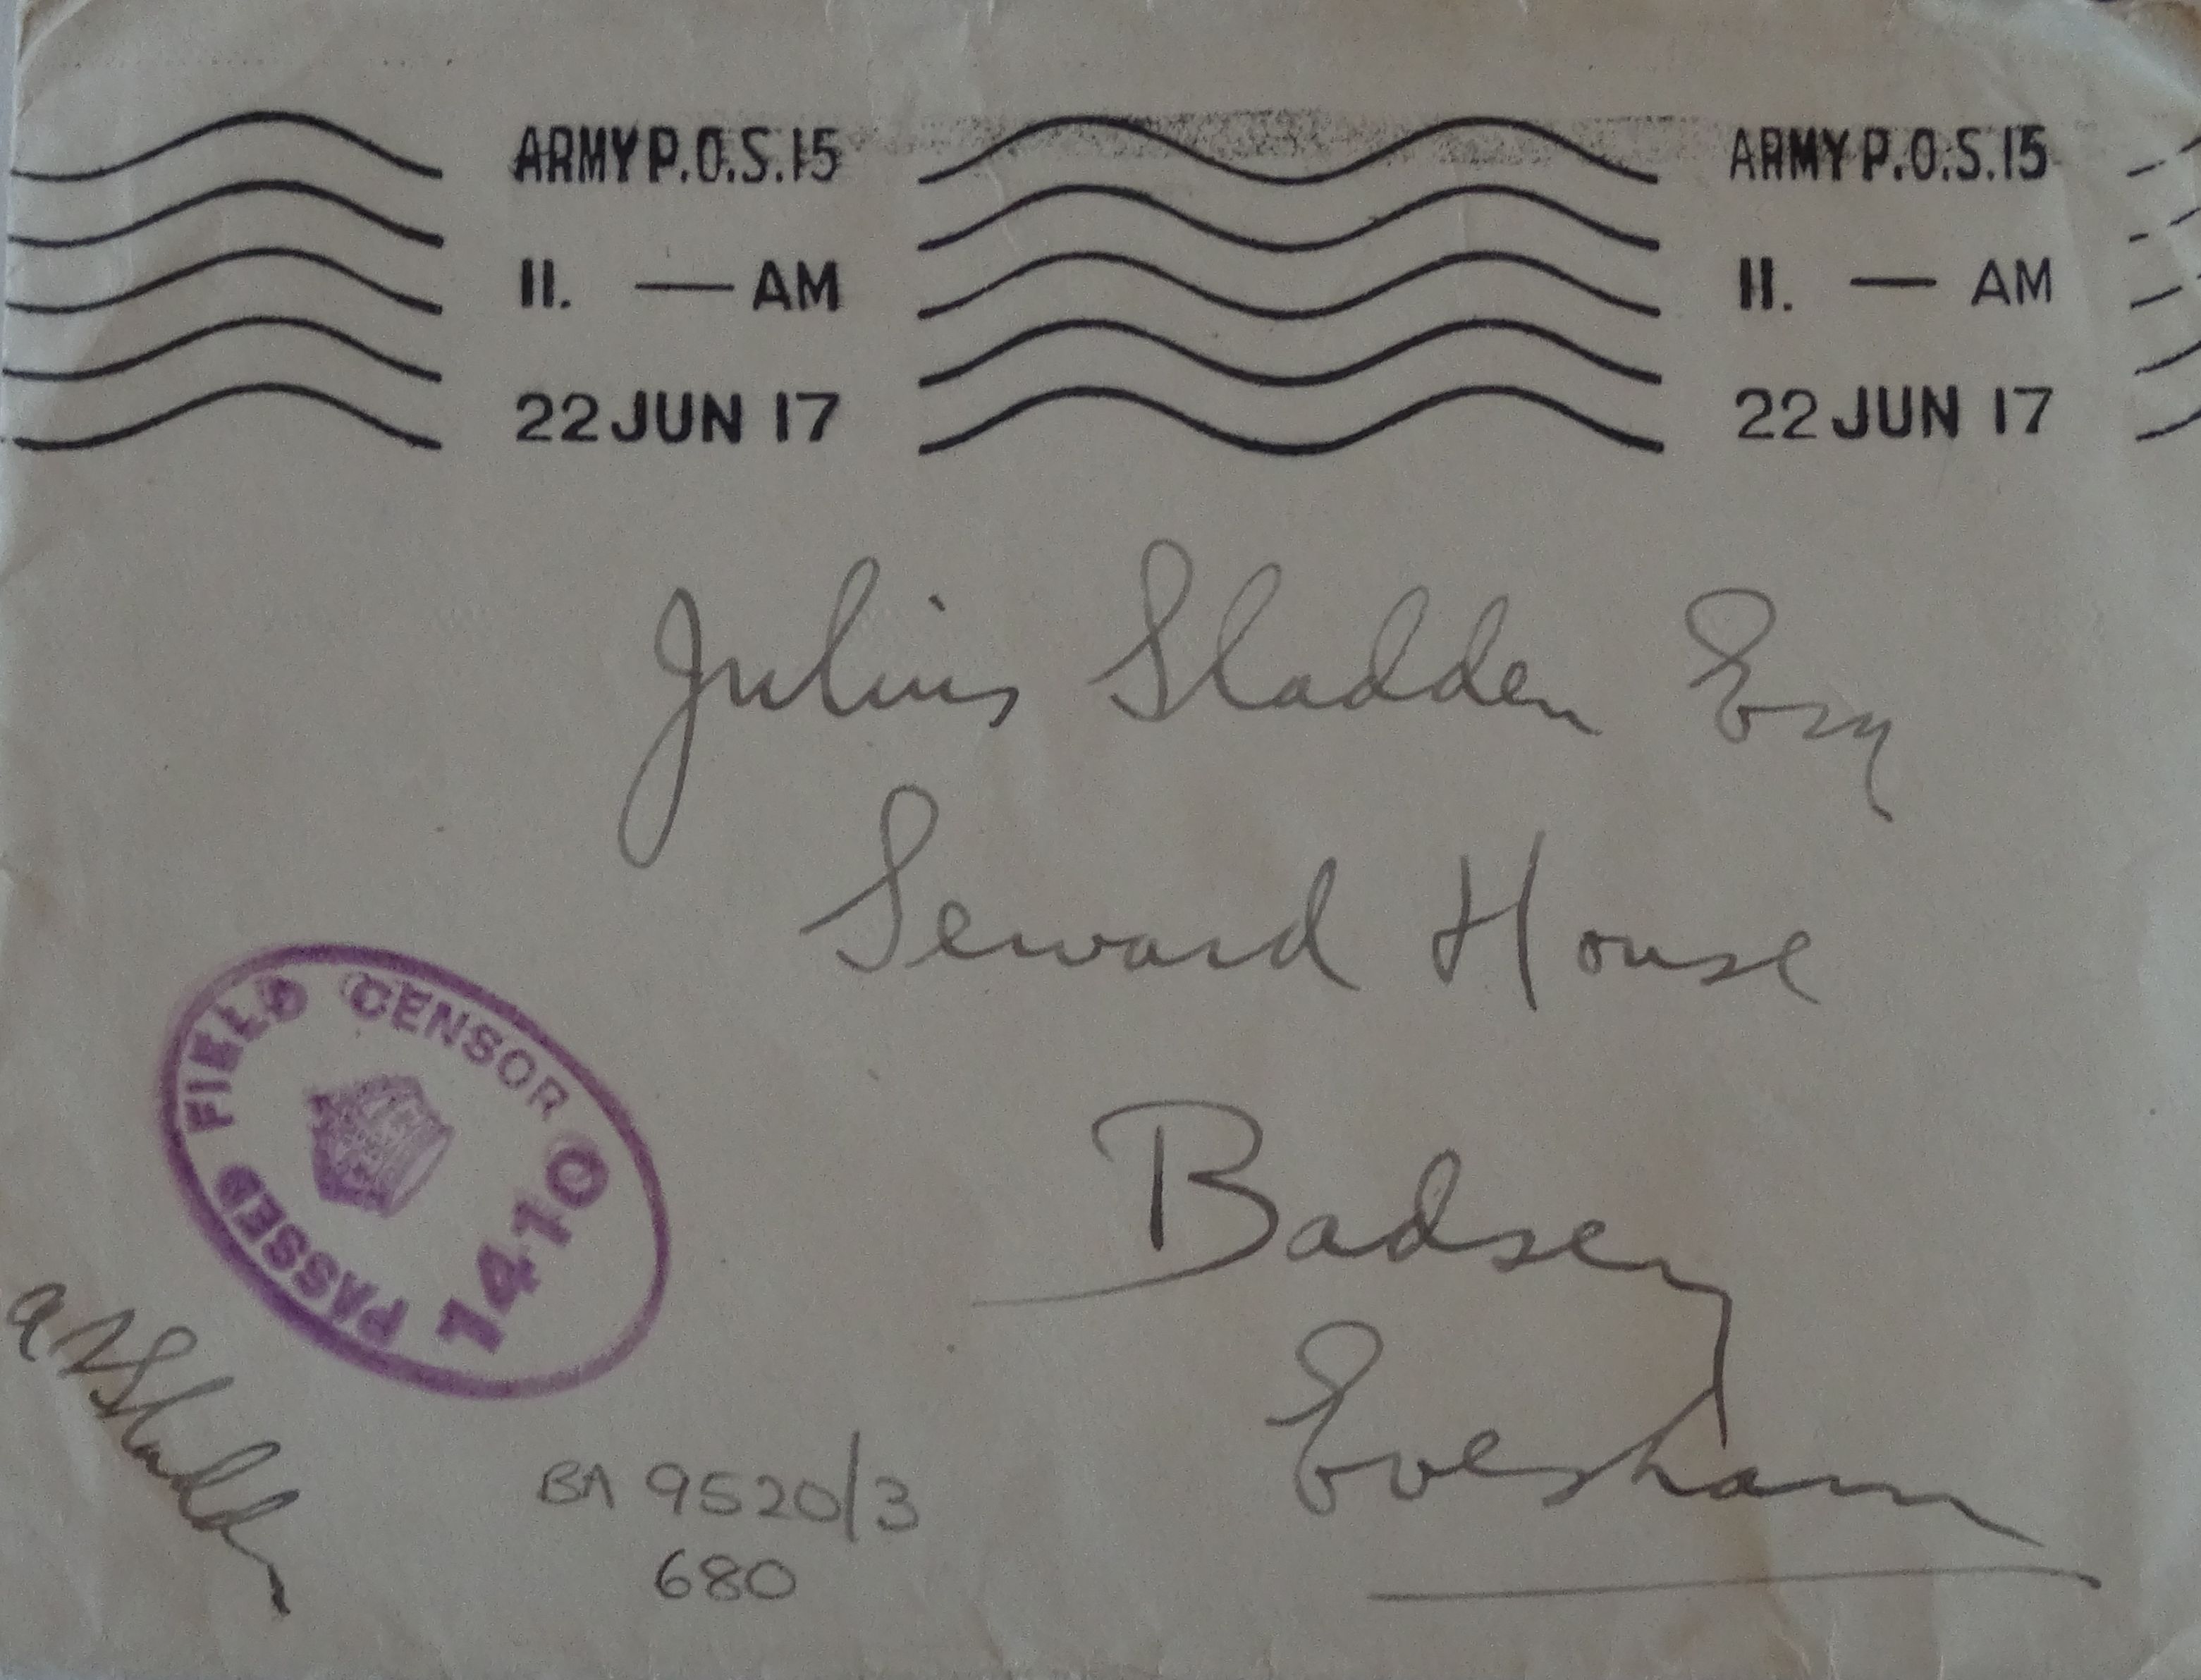 ARMY P.O.S.15 ARMY P.O.S.15
11. — AM 11. — AM
22 JUN 17 22 JUN 17
Julius Sladden Esq
Seward House
Badsey
Evesham
PASSED FIELD CENSOR
1410
Sladden
BA 9520/3
680